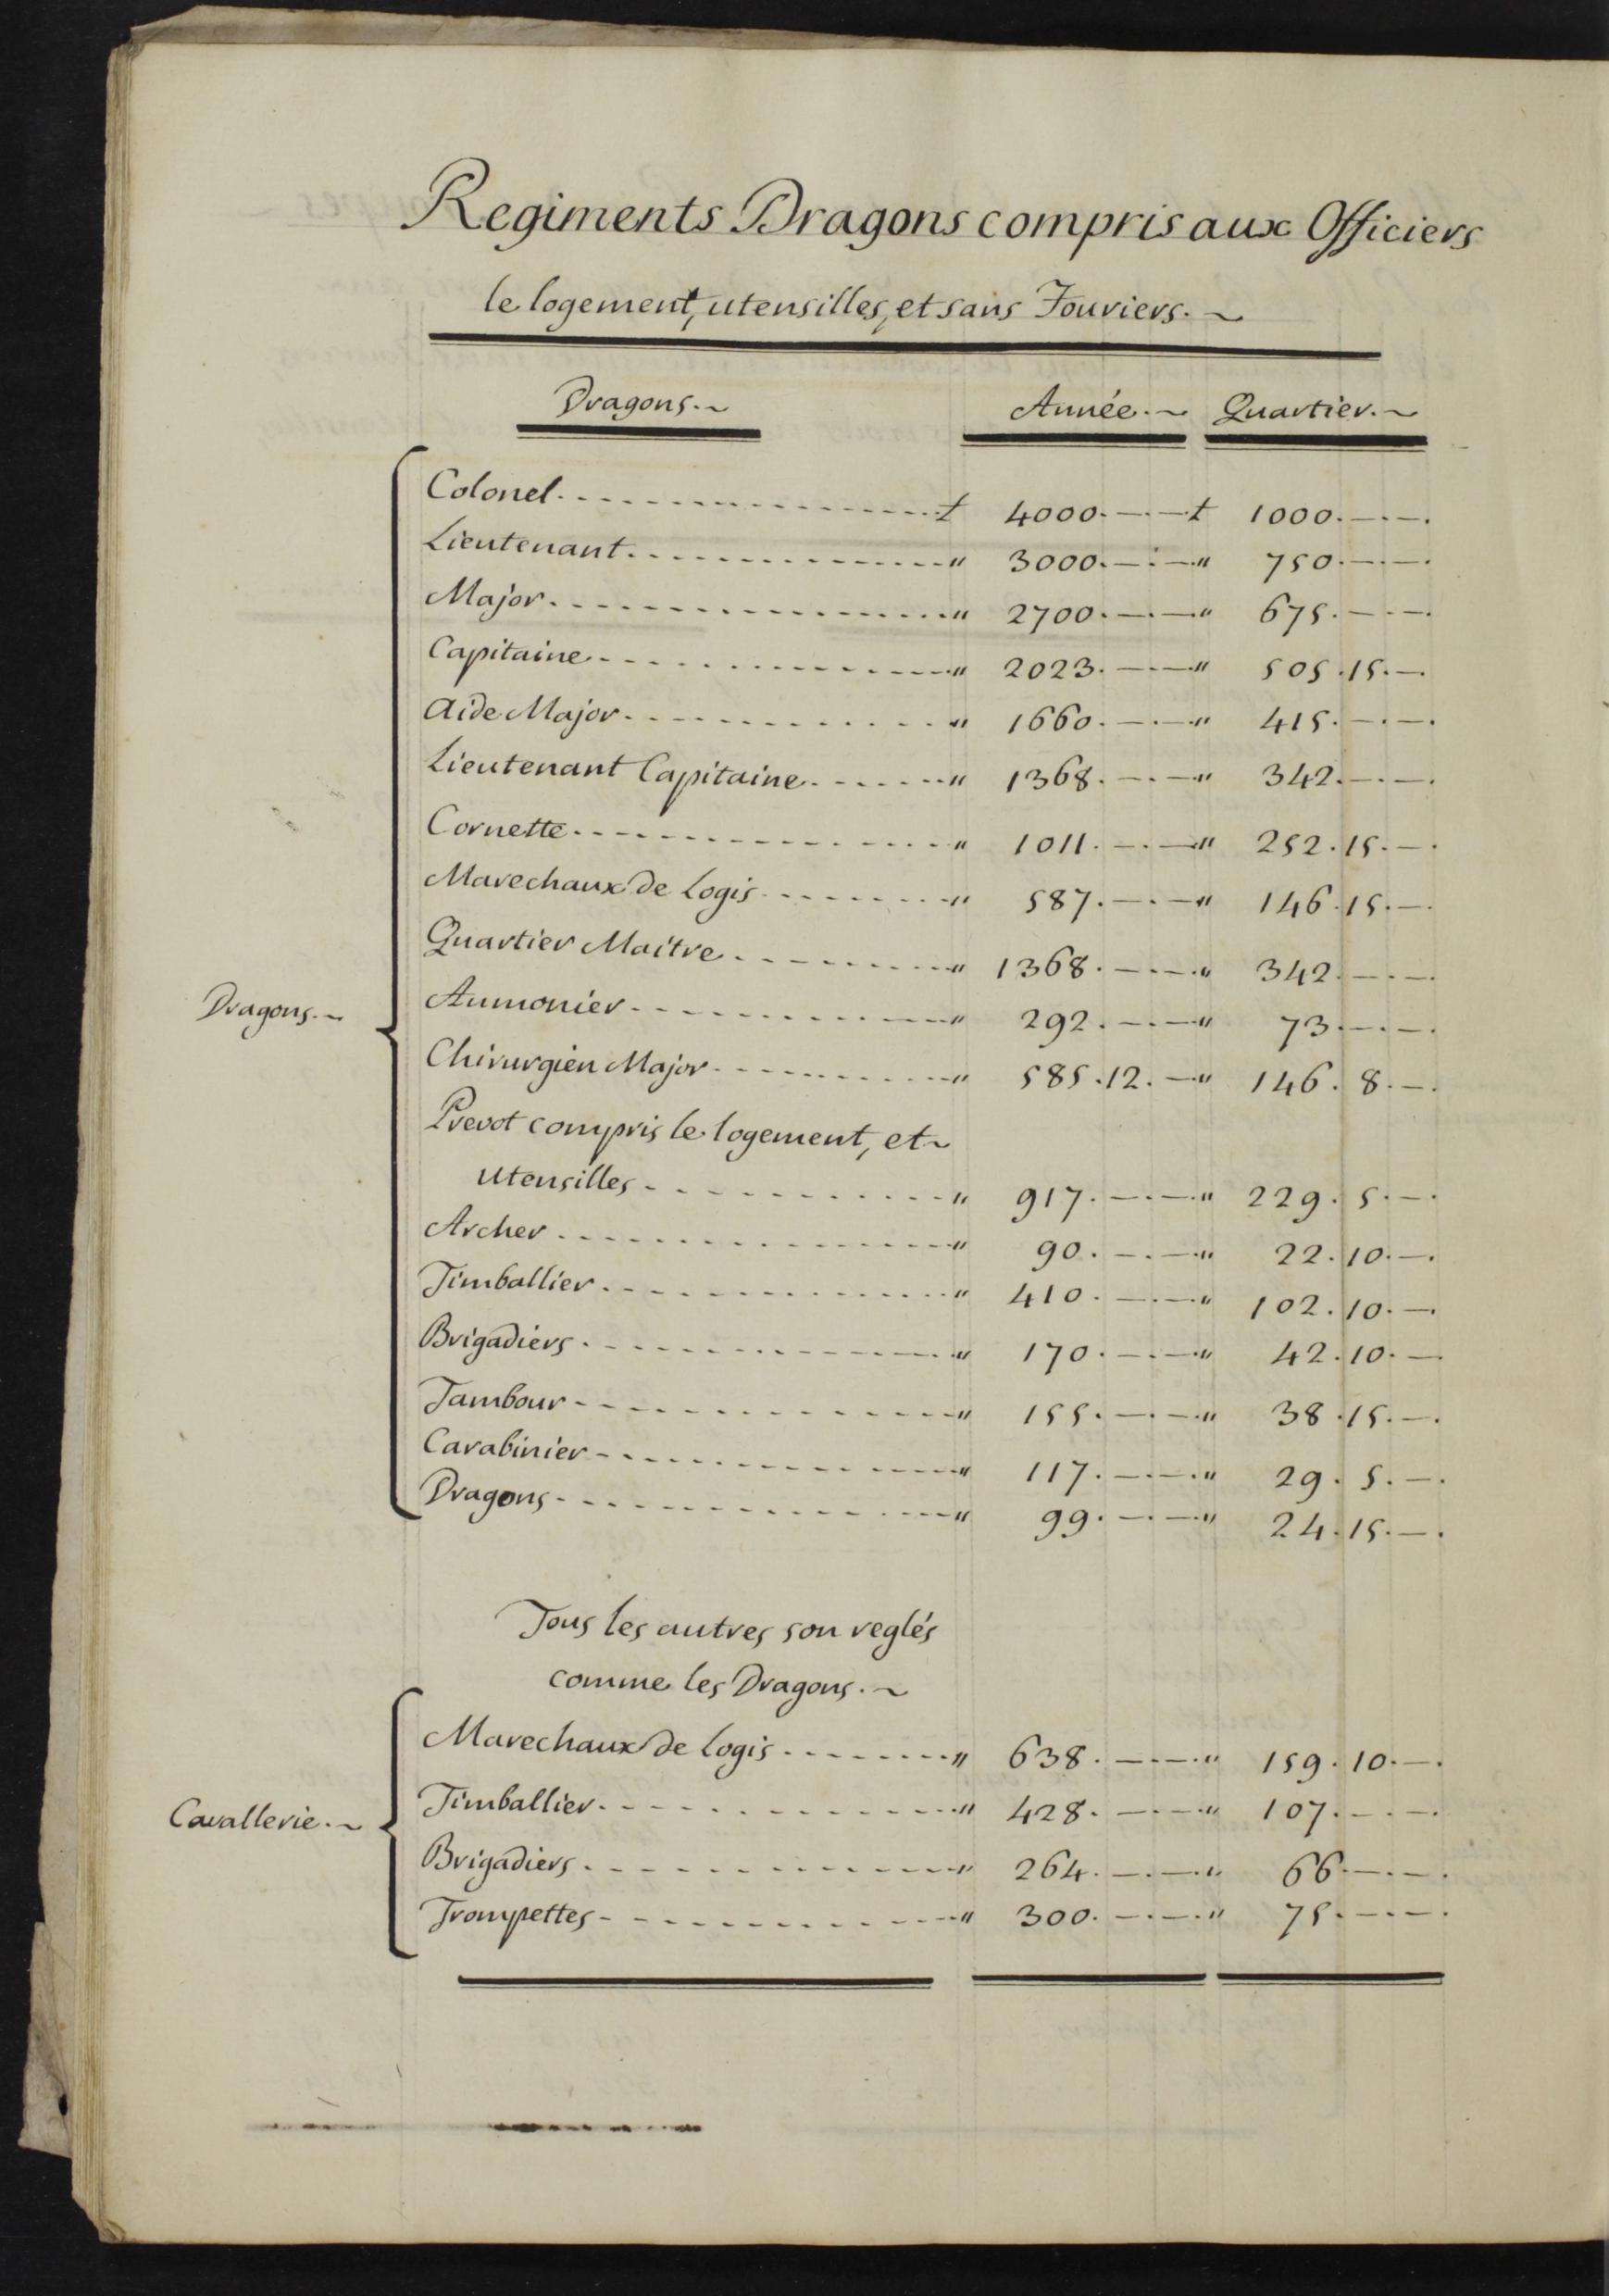 Regiments Dragons compris aux Officiers
le logement, utensilles, et sans Fouriers. ~
Dragons. ~ Année. ~ Quartier. ~
Dragons. ~
Colonel £ 4000. — . — £ 1000. — . — .
Lieutenant " 3000. — . — " 750. — . — .
Major " 2700. — . — " 675. — . — .
Capitaine " 2023. — . — " 505. 15. — .
Aide Major " 1660. — . — " 415. — . — .
Lieutenant Capitaine " 1368. — . — " 342. — . — .
Cornette " 1011. — . — " 252. 15. — .
Marechaux de Logis " 587. — . — " 146. 15. — .
Quartier Maitre " 1368. — . — " 342. — . — .
Aumonier " 292. — . — " 73. — . — .
Chirurgien Major " 585. 12. — " 146. 8. — .
Prevot compris le logement, et ~
utensilles " 917. — . — " 229. 5. — .
Archer " 90. — . — " 22. 10. — .
Timballier " 410. — . — " 102. 10. — .
Brigadiers " 170. — . — " 42. 10. — .
Tambour " 155. — . — " 38. 15. — .
Carabinier " 117. — . — " 29. 5. — .
Dragons " 99. — . — " 24. 15. — .
Tous les autres son reglés
comme les Dragons. ~
Cavallerie. ~
Marechaux de Logis " 638. — . — " 159. 10. — .
Timballier " 428. — . — " 107. — . — .
Brigadiers " 264. — . — " 66. — . — .
Trompettes " 300. — . — " 75. — . — .